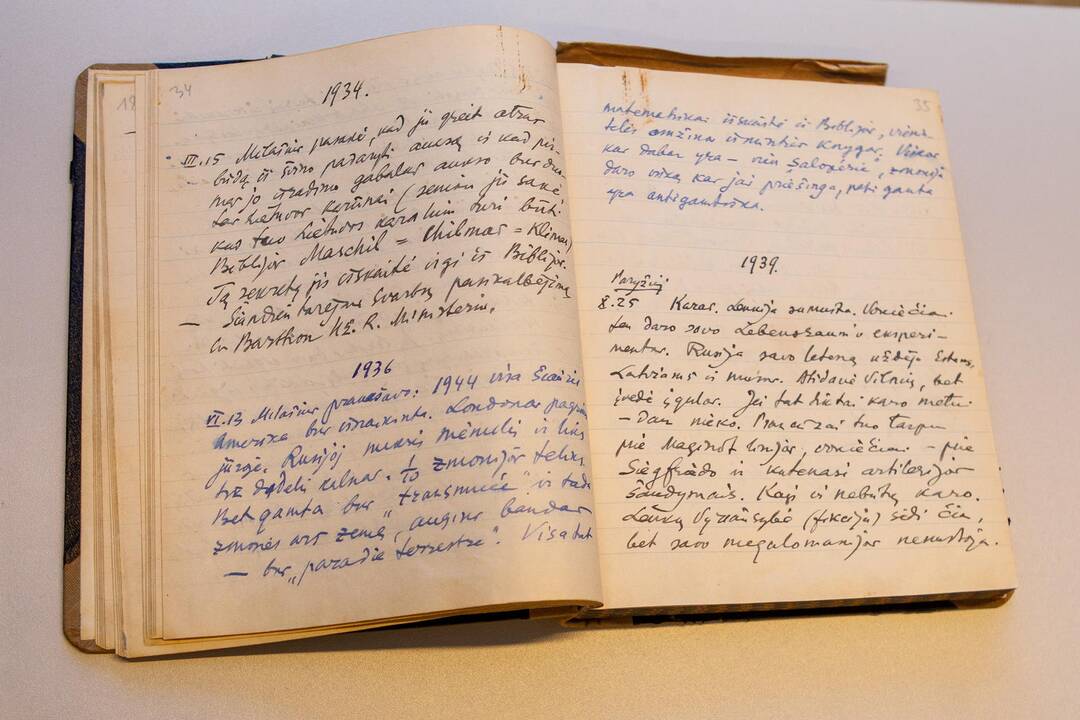 34
1934.
III.15 Milašius pasakė, kad jis greit atras
būdą iš švino padaryti auksą ir kad pir-
mas jo išradimo gabalas aukso bus duo-
tas Lietuvos karūnai (seniau jis sakė
kad tuo Lietuvos karalium turi būti
Biblijos Maschil = Chilmas = Klimas)
Tą sekretą jis išskaitė irgi iš Biblijos.
— Šiandien turėjme svarbų pasikalbėjimą
su Bartkon UŽ. R. Ministeriu.
1936
VI.13 Milašius pranašavo: 1944 visa Šiaurės
Amerika bus išnaikinta. Londonas pagrims
jūroje. Rusijoj nukris mėnulis ir liks
tik didelis kalnas. 1/10 žmonijos teliks
Bet gamta bus „transmuée" ir tada
žmonės ars žemę, augins bandas
— bus „paradis terrestre". Visa tai
35
matematiškai išskaitė iš Biblijos, viena
telės amžina išminties knygos. Viskas
kas dabar yra — vien „saloperie", žmonija
daro viską kas jai priešinga, pati gamta
yra antigamtoška.
1939.
Paryžiuj
X.25 Karas. Lenkija sumušta. Vokiečiai
ten daro savo Lebensraum'o eksperi-
mentus. Rusija savo leteną uždėjo Estams,
Latviams ir mums. Atidavė Vilnių, bet
įvedė įgulas. Jei tat tiktai karo metu
— dar nieko. Prancūzai tuo tarpu
prie Maginot linijos, vokiečiai — prie
Siegfriedo ir katenasi artilerijos
šaudymais. Kaip ir nebūtų karo.
Lenkų Vyriausybė (fikcija) sėdi čia,
bet savo megalomanijos nenustoja.